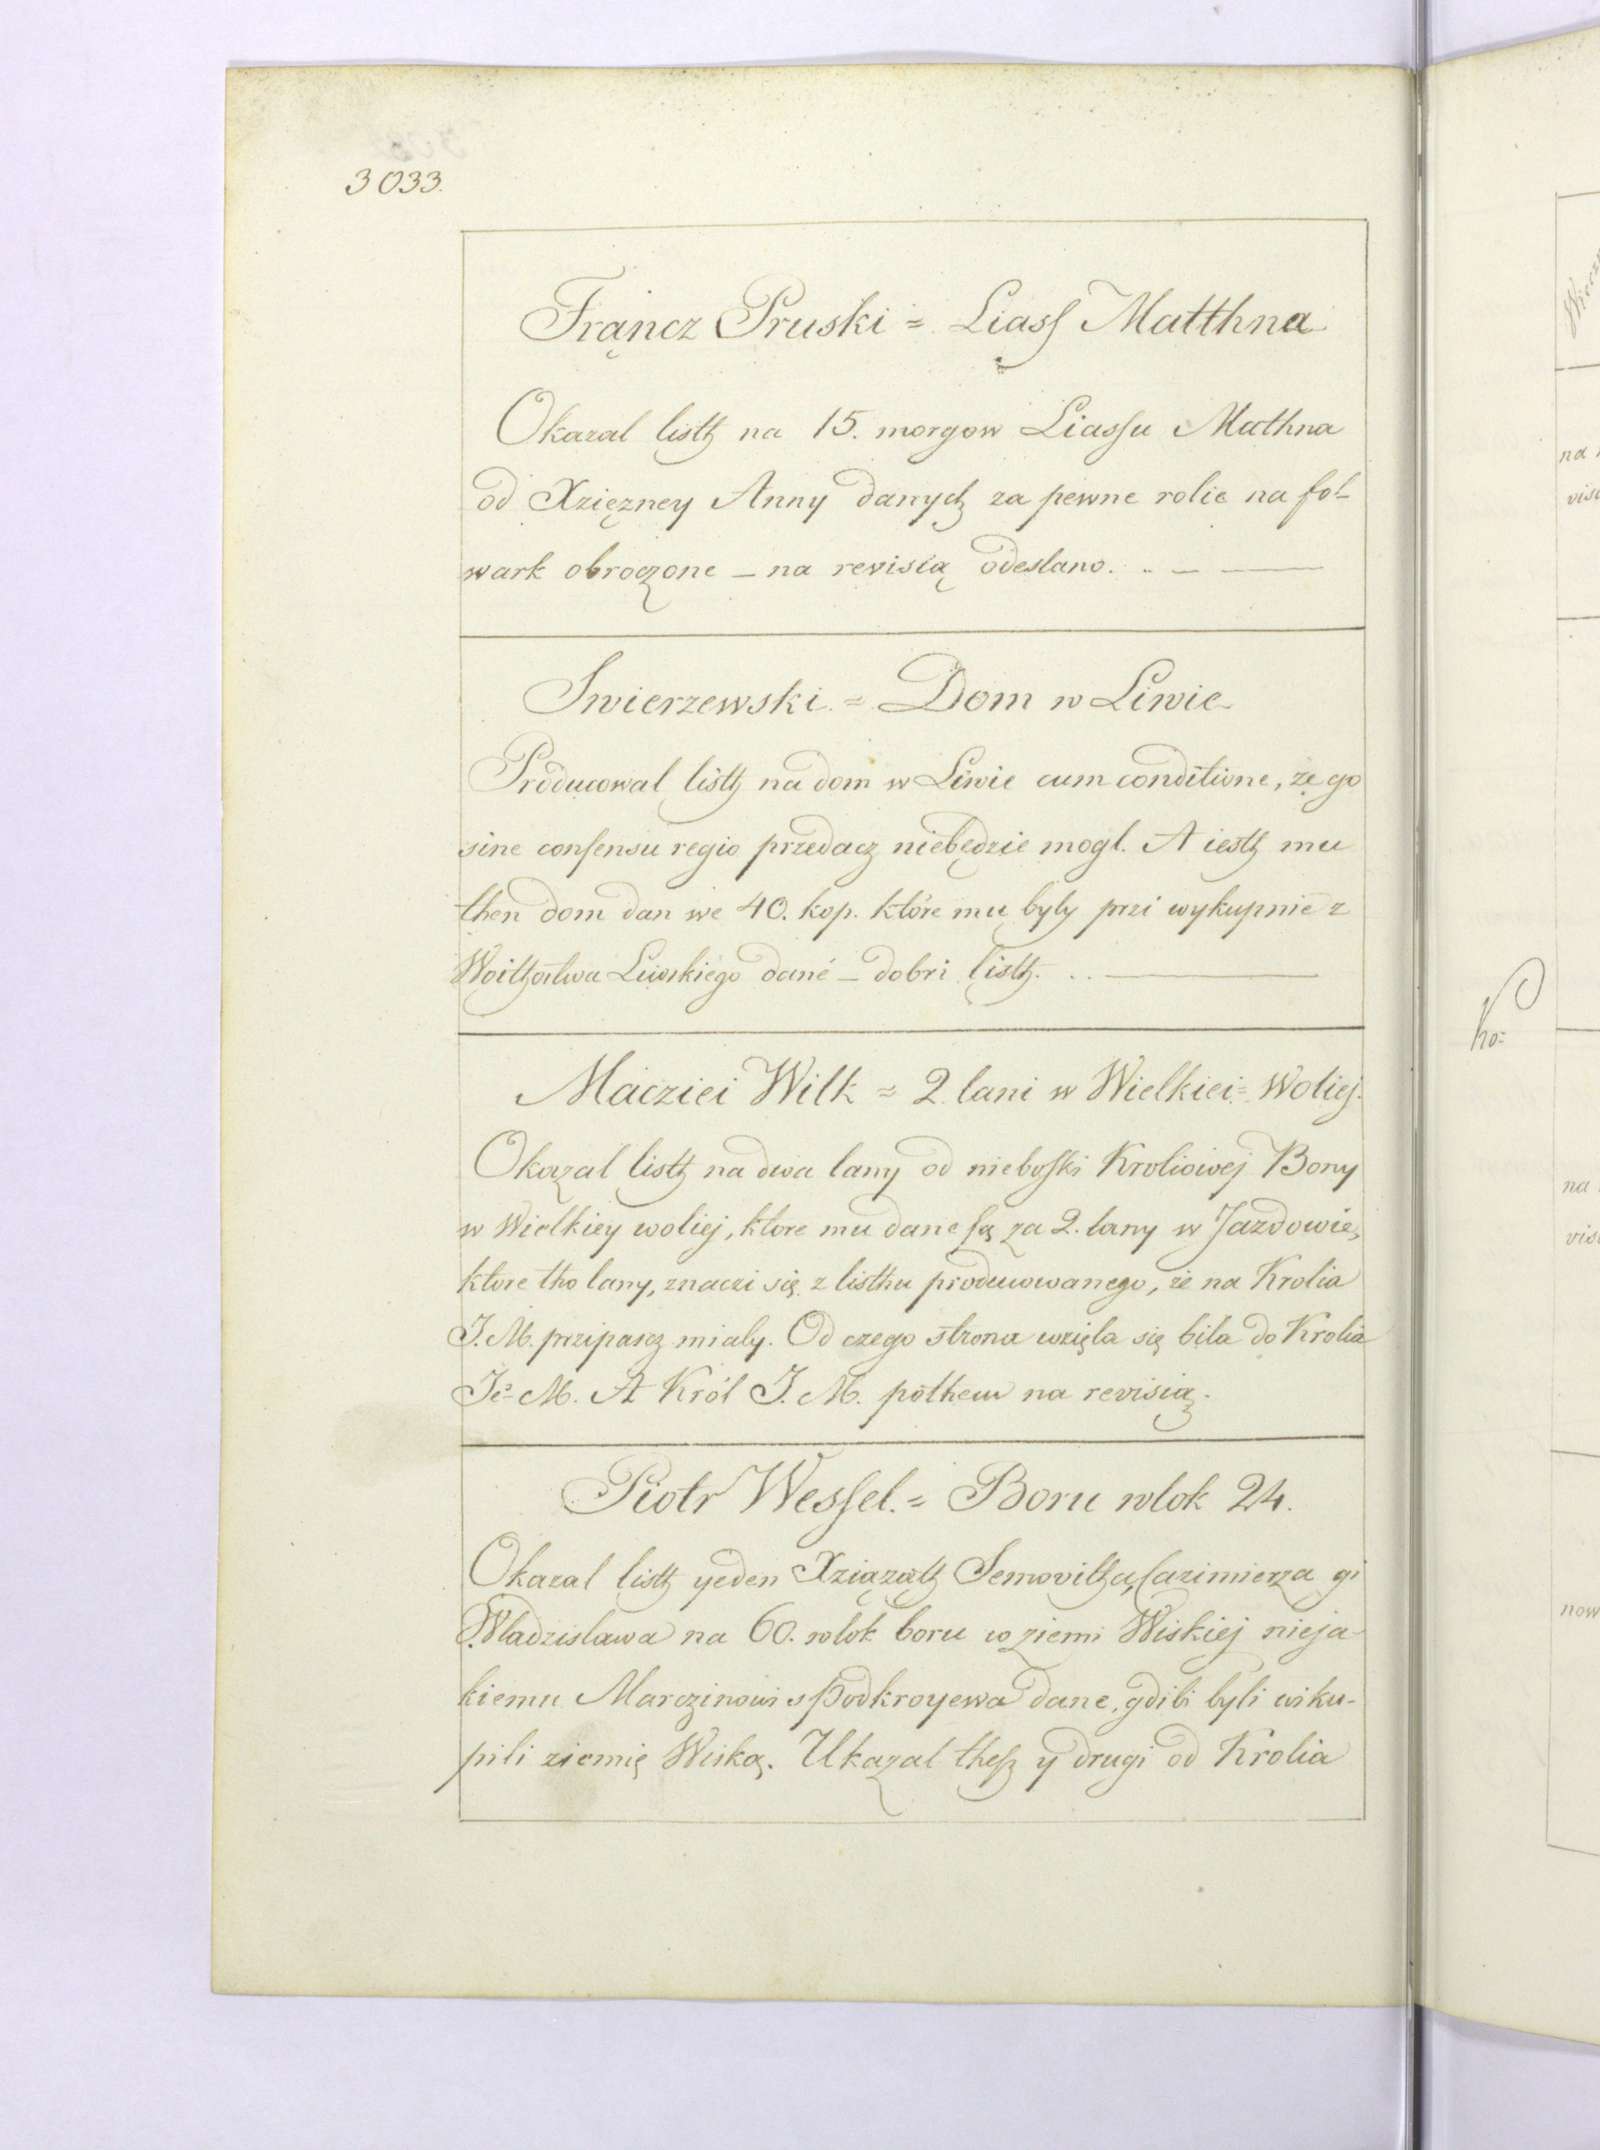 3033.
Frąncz Pruski = Liasſ Matthna
Okazal listh na 15. morgow Liasſu Mathna
od Xzięzney Anny danych za pewne rolie na fol-
wark obroczone – na revisią odeslano. . . – —
Swierzewski. = Dom w Liwie
Producowal listh na dom w Liwie cum conditione, że go
sine conſensu regio przedacz niebędzie mogl. A iesth mu
then dom dan we 40. kop. które mu były przi wykupnie z
Woithostwa Liwskiégo dané – dobri listh. . . —
Macziei Wilk = 2 lani w Wielkiei = Woliej.
Okazal listh na dwa lany od nieboſki Kroliowej Bony
w Wielkiey woliej, ktore mu dane ſą za 2. lany w Jazdowie,
ktore tho lany, znaczi się z listhu producowanego, że na Krolia
J. M. przipascz mialy. Od czego strona wzięla się bila do Krolia
Je- M. A Król J. M. pothem na revisią.
Piotr Wesſel. = Boru wlok 24.
Okazal listh yeden Xziążąth Semovitha, Cazimierza y
Wladzislawa na 60. wlok boru w ziemi Wiskiej nieja-
kiemu Marczinowi s Podkroyewa dane, gdibi byli wiku-
pili ziemię Wiską. Ukazal theſz y drugi od Krolia
na
visi
ho=
na
visi
now